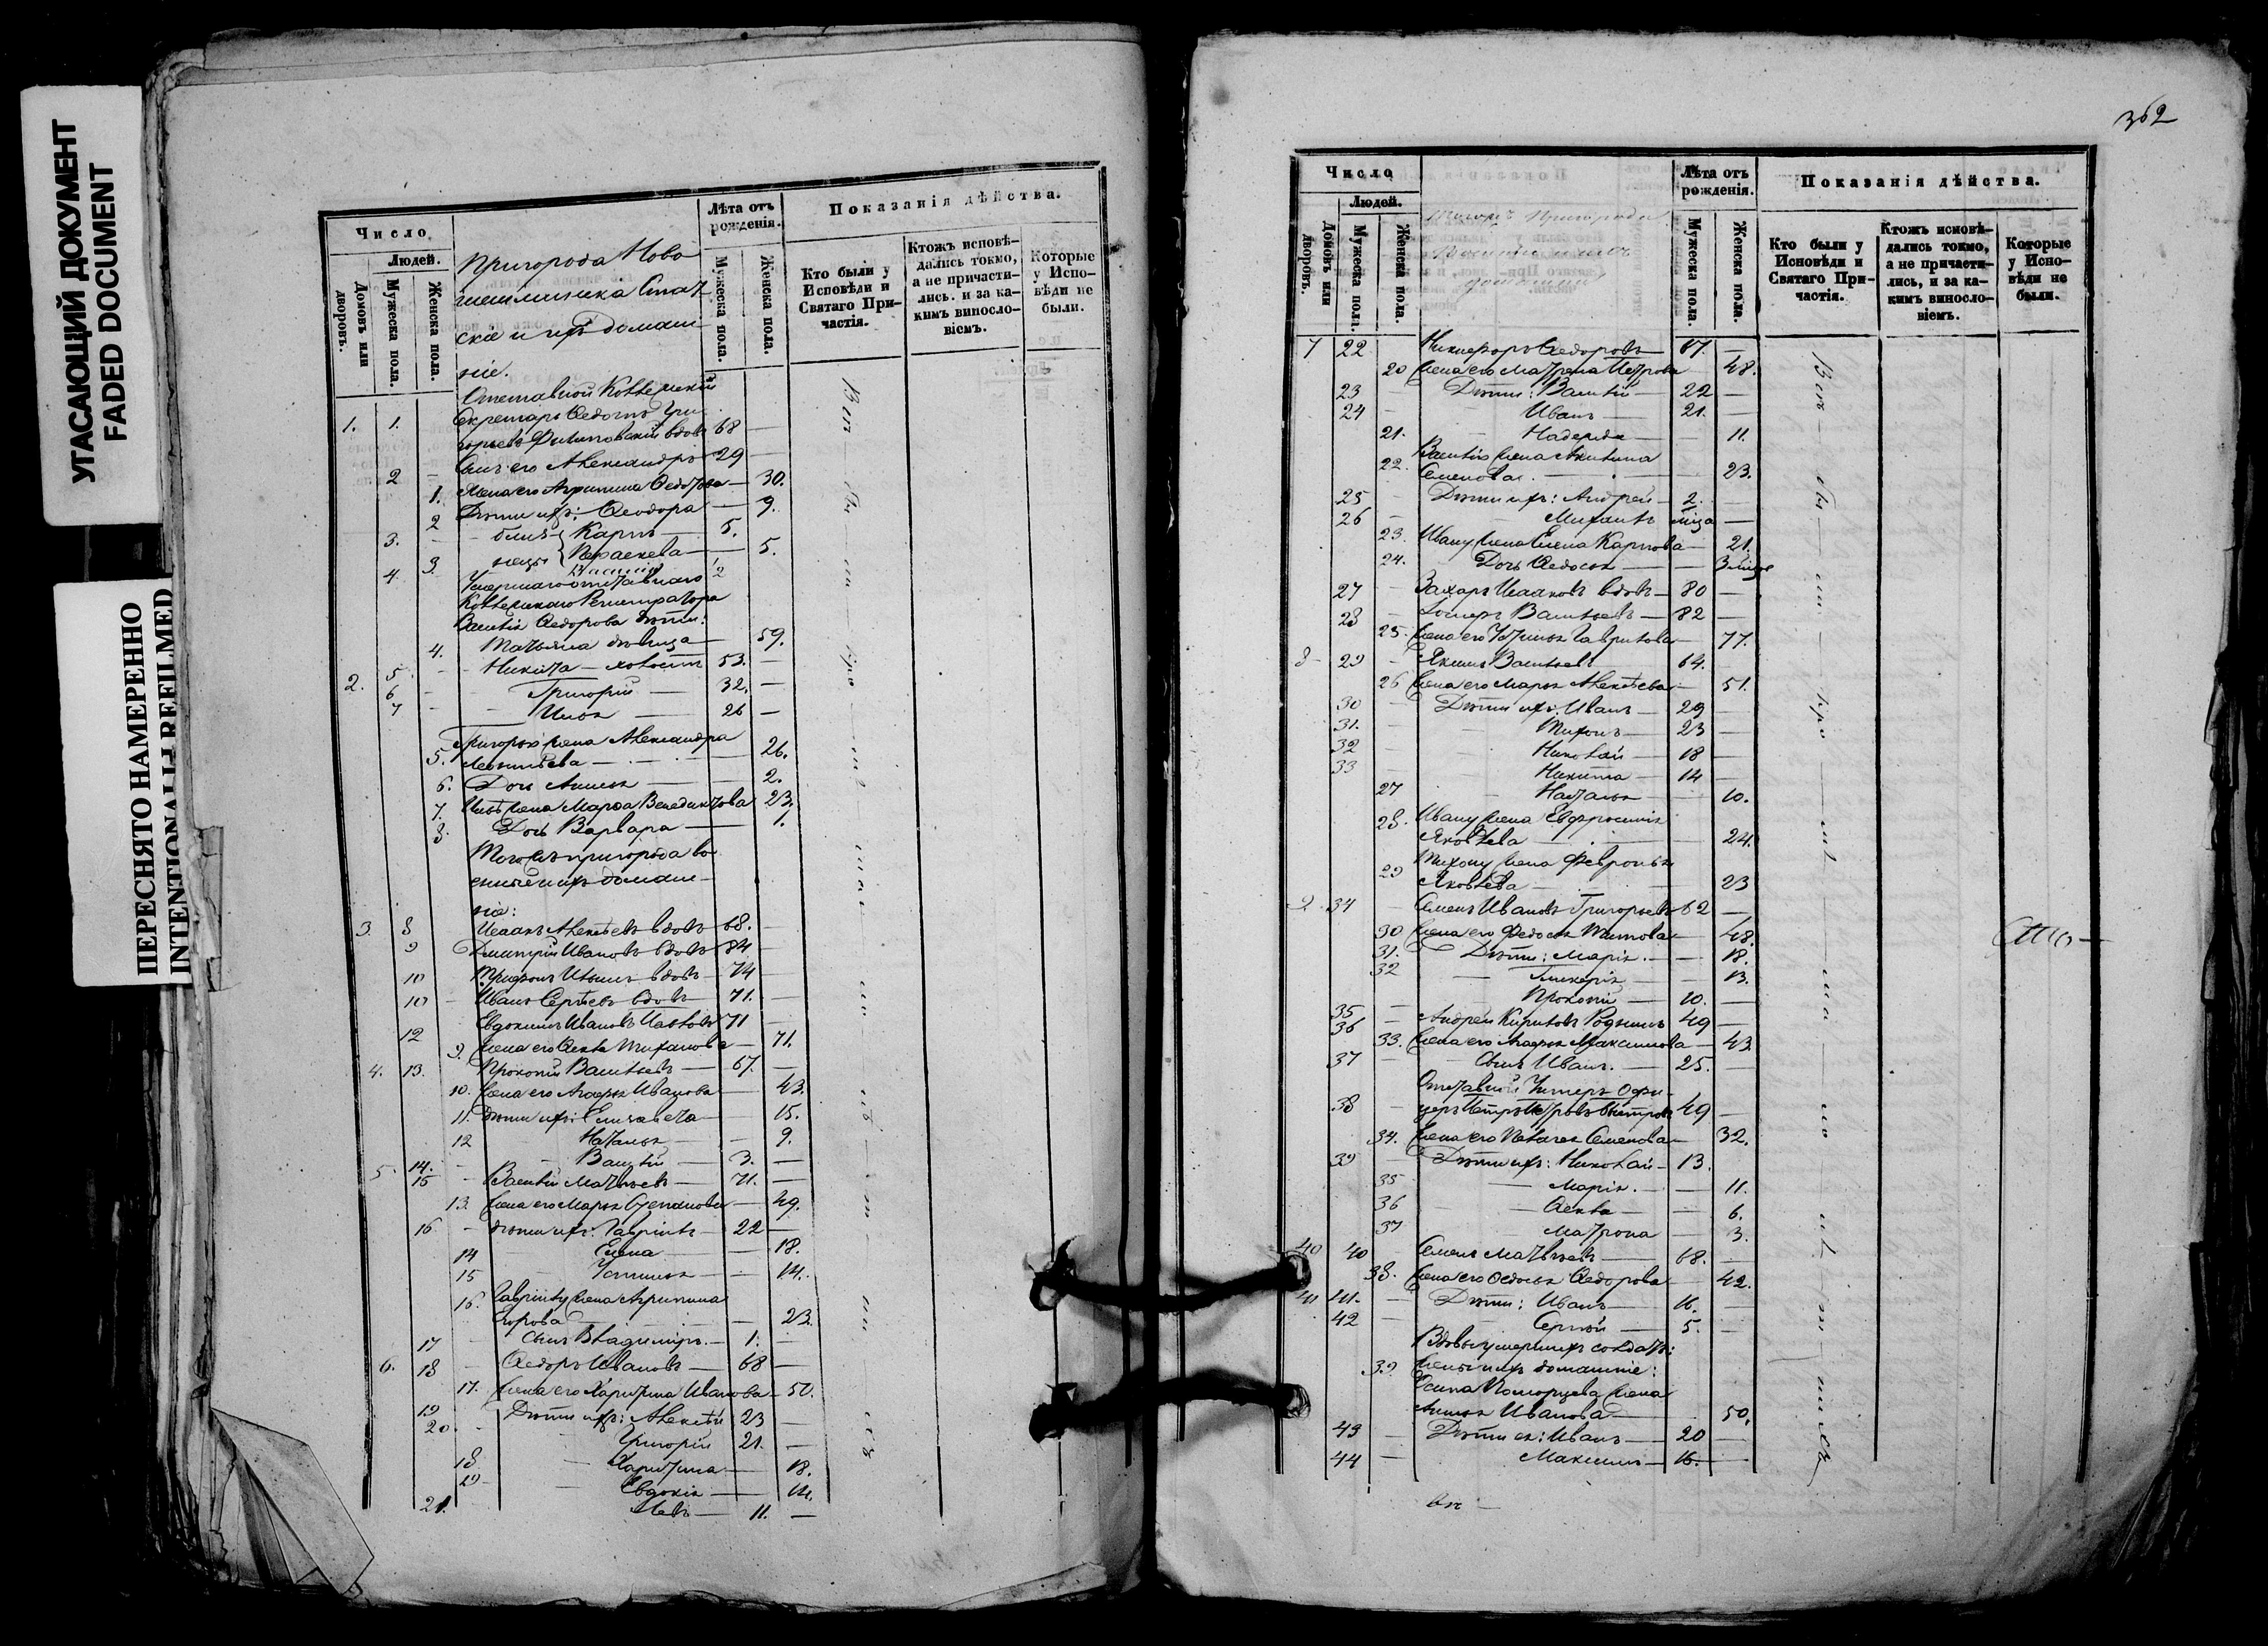 УГАСАЮЩИЙ ДОКУМЕНТ
FADED DOCUMENT
ПЕРЕСНЯТО НАМЕРЕННО
INTENTIONALLY REFILMED
Число
Людей.
Домовъ или дворовъ.
Мужеска пола.
Женска пола.
Пригорода Ново
шешминска Стат
ска и ихъ домаш
ніе.
Лѣта отъ рожденія.
Мужеска пола.
Женска пола.
Показанія дѣйства.
Кто были у Исповѣди и Святаго Причастія.
Ктожъ исповѣдались токмо, а не причастились. и за какимъ винословіемъ.
Которые у Исповѣди не были.
Отставной Коллежскій
1. 1. Секретарь Ѳедотъ Гри
горьевъ Филиповскій вдовъ 68 —
2 — Сынъ его Александръ 29 —
1. Жена его Агрипина Ѳедотова — 30.
2 Дѣти ихъ: Ѳеодора — 9.
3. — близ Карпъ — 5.
3. нецы Параскева — 5.
4. Василій 2
Умершаго отставнаго
Коллежскаго Регистратора
Василія Ѳедорова дѣти:
4. Татьяна дѣвица — 59.
5. — Никита — холостъ 53. —
2. 6 — Григорій — 32. —
7 — Илья — 26 —
Григорья жена Александра
5. Леонтьева — 26.
6. Дочь Анисья — 2.
7. Ильѣ жена Марфа Венедиктова 23.
8. Дочь Варвара — 1.
Того же пригорода во
енные и ихъ домаш
ніе:
3. 8 Исаакъ Алексѣевъ вдовъ 68. —
9 Дмитрій Ивановъ вдовъ 84 —
10 Трифонъ Ильинъ вдовъ 74 —
10 — Иванъ Сергѣевъ вдовъ 71. —
12 Евдокимъ Ивановъ Павловъ 71 —
9. Жена его Ѳекла Тиханова — 71.
4. 13. Прокопій Васильевъ — 67. —
10. Жена его Агафья Иванова — 43.
11. Дѣти ихъ: Елизавета — 15.
12 Наталья — 9.
14. — Василій — 3. —
5 15 — Василій Матвѣевъ — 71. —
13. Жена его Марья Степанова — 49.
16 — Дѣти ихъ: Гаврилъ — 22 —
14 Елена — 18.
15 Устинья — 14.
16. Гаврилу жена Агрипина
Егорова — 23.
17 — Сынъ Владимиръ — 1. —
6. 18 — Ѳедоръ Ивановъ — 68 —
17. Жена его Харитина Иванова — 50.
19 Дѣти ихъ: Алексѣй 23 —
20. — Григорій 21. —
18 — Харитина — 18.
19 — Евдокія — 14.
21. Левъ — 11. —
362
Число
Людей.
Домовъ или дворовъ.
Мужеска пола.
Женска пола.
Тогожъ Пригорода
Лѣта отъ рожденія.
Мужеска пола.
Женска пола.
Показанія дѣйства.
Кто были у Исповѣди и Святаго Причастія.
Ктожъ исповѣдались токмо, а не причастились, и за какимъ винословіемъ.
Которые у Исповѣди не были.
7 22 Никифоръ Ѳедоровъ 67. —
20 Жена его Матрена Петрова 48.
23 — Дѣти: Василій — 22 —
24 — Иванъ — 21. —
21. — Надежда — 11.
Василія жена Акилина
22. Семенова — 23.
25 — Дѣти ихъ: Андрей — 2. —
26 — Михаилъ мѣца —
23. Ивану жена Елена Карпова — 21.
24. Дочь Ѳедосья — 3 мѣца
27 — Захаръ Исааковъ вдовъ — 80 —
28 — Васильевъ — 82 —
25. Жена его Устинья Гаврилова — 77.
8 29 — Якимъ Васильевъ 64. —
26 Жена его Марья Алексѣева — 51.
30 — Дѣти ихъ: Иванъ — 29 —
31. — Тихонъ — 23 —
32 — Николай — 18 —
33 — Никита — 14 —
27 — Наталья — 10.
28. Ивану жена Евфросинія
Яковлева — 24.
Тихону жена Февронья
29 Яковлева — 23
9. 34 — Семенъ Ивановъ Григорьевъ 62 —
30 Жена его Федосья Титова — 48.
31. Дѣти: Марія. — 18.
32 — Гликерія — 13.
35 — Прокопій — 10. —
36 — Андрей Кириловъ Родинъ 49 —
33. Жена его Агафья Максимова — 43.
37 — Сынъ Иванъ. — 25. —
Отставный Унтеръ Офи
38 — церъ Петръ Петровъ 49 —
34. Жена его Пелагея Семенова — 32.
39 — Дѣти ихъ: Николай — 13.
35 — Марія. — 11.
36 — Ѳекла — 6.
37 Матрона — 3.
40 40 Семенъ Матвѣевъ — 68. —
38. Жена его Ѳедосья Ѳедорова 42.
41 41. — Дѣти: Иванъ — 16. —
42 — Сергѣй — 5. —
Вдовы умершихъ солдатъ:
39 жены и ихъ домашніе:
Осипа жена
Анисья Иванова — 50.
43 — Дѣти ея: Иванъ — 20 —
44 — Максимъ — 16. —